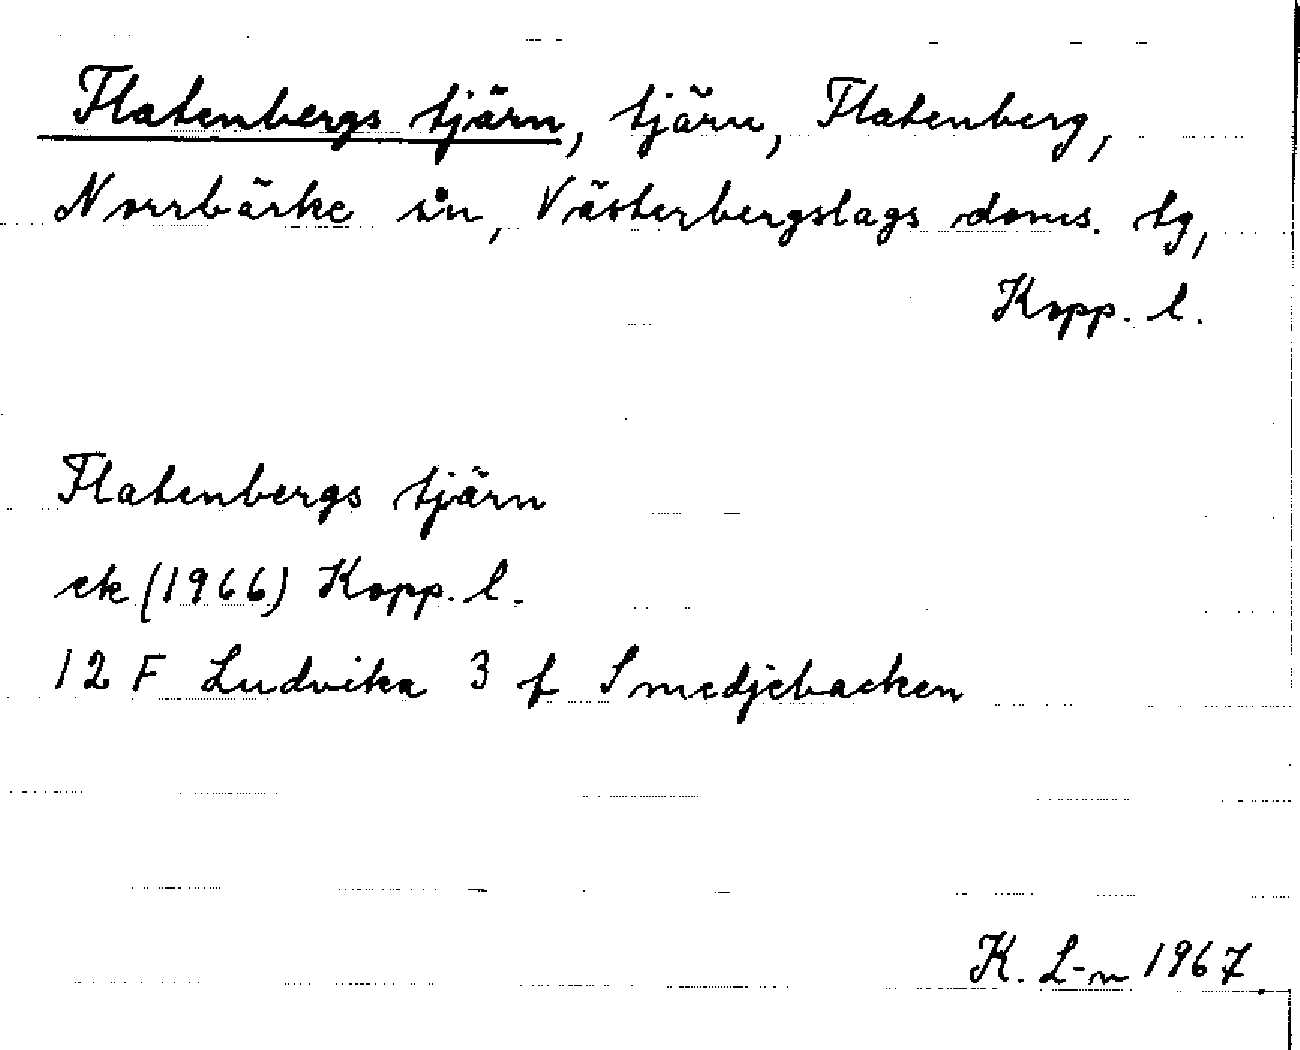 Flatenbergs tjärn, tjärn, Flatenberg,
Norrbärke sn, Västerbergslags doms. tg,
Kopp. l.
Flatenbergs tjärn
ek (1966) Kopp. l.
12 F Ludvika 3 f Smedjebacken
K. L-n 1967